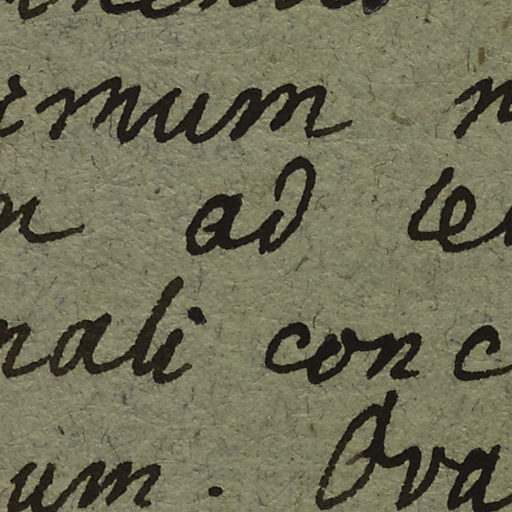 imum n
n ad le
nali con c
um. Ova